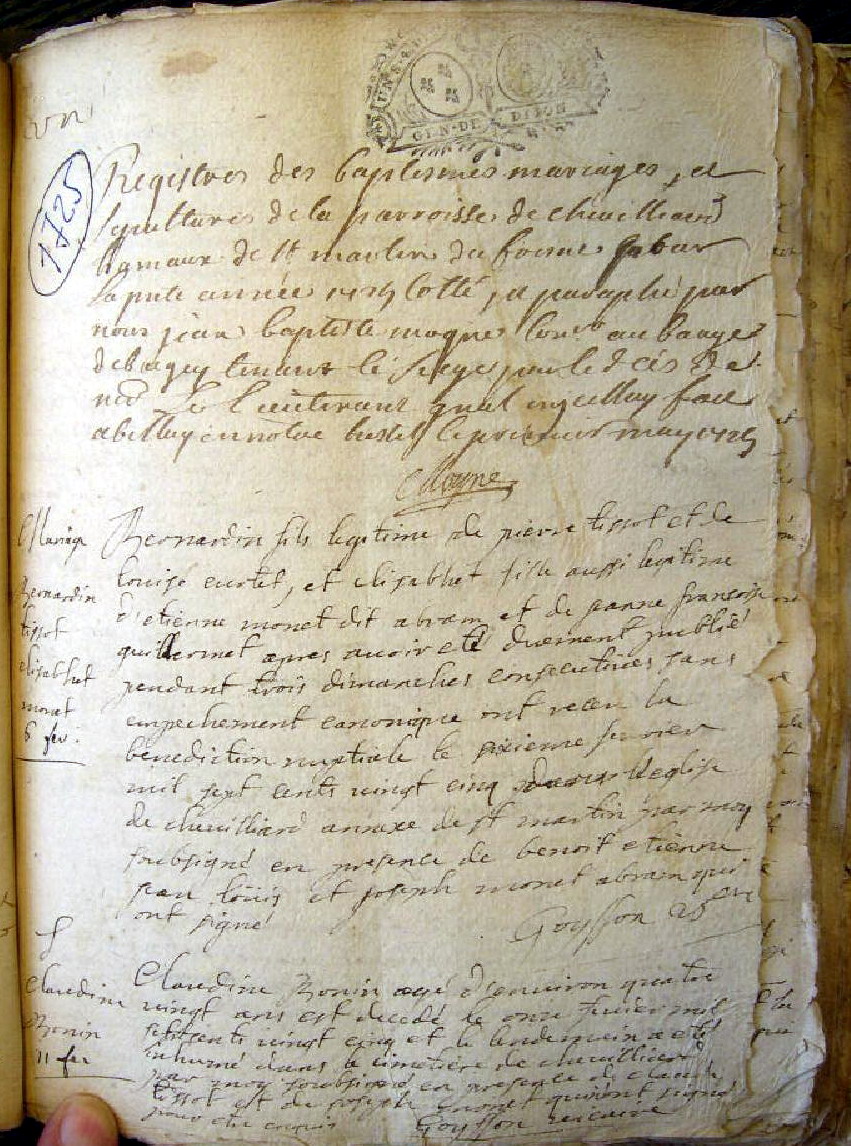 GEN. DE DIJON
1725
Registres des baptesmes mariages, et
sepultures de la parroisse de chevilliard
hameaux de st martin du fresne pour
la pnte année 1725 cotté, et paraphé par
nous jean baptiste moyne au
de bugey tenant le siege pour le deces de
mr le lieutenant quel
en notre hostel le premier may 1725
Moyne
Mariage
Bernardin
tissot
elisabhet
monet
6 fev.
Bernardin fils legitime de pierre tissot et de
louise curtet, et elisabhet fille aussi legitime
d'etienne monet dit abram et de jeanne françoise
guillermet apres avoir eté duement publié
pendant trois dimanches consecutives sans
empechement canonique ont receu la
benediction nuptiale le sixieme fevrier
mil sept cents vingt cinq dans l'eglise
de chevilliard annexe de st martin par moy
soubsigné en presence de benoit etienne
jean loüis et joseph monet abram qui
ont signé
Goysson vicaire
S
Claudine
Bonin
11 fev
Claudine Bonin agé d'environ quatre
vingt ans est decedé le onze fevrier mil
septcents vingt cinq et le lendemain a eté
inhumé dans le cimetiere de chevilliard
par moy soubsigné en presence de claude
tissot et de joseph monet qui ont signé
Goysson vicaire